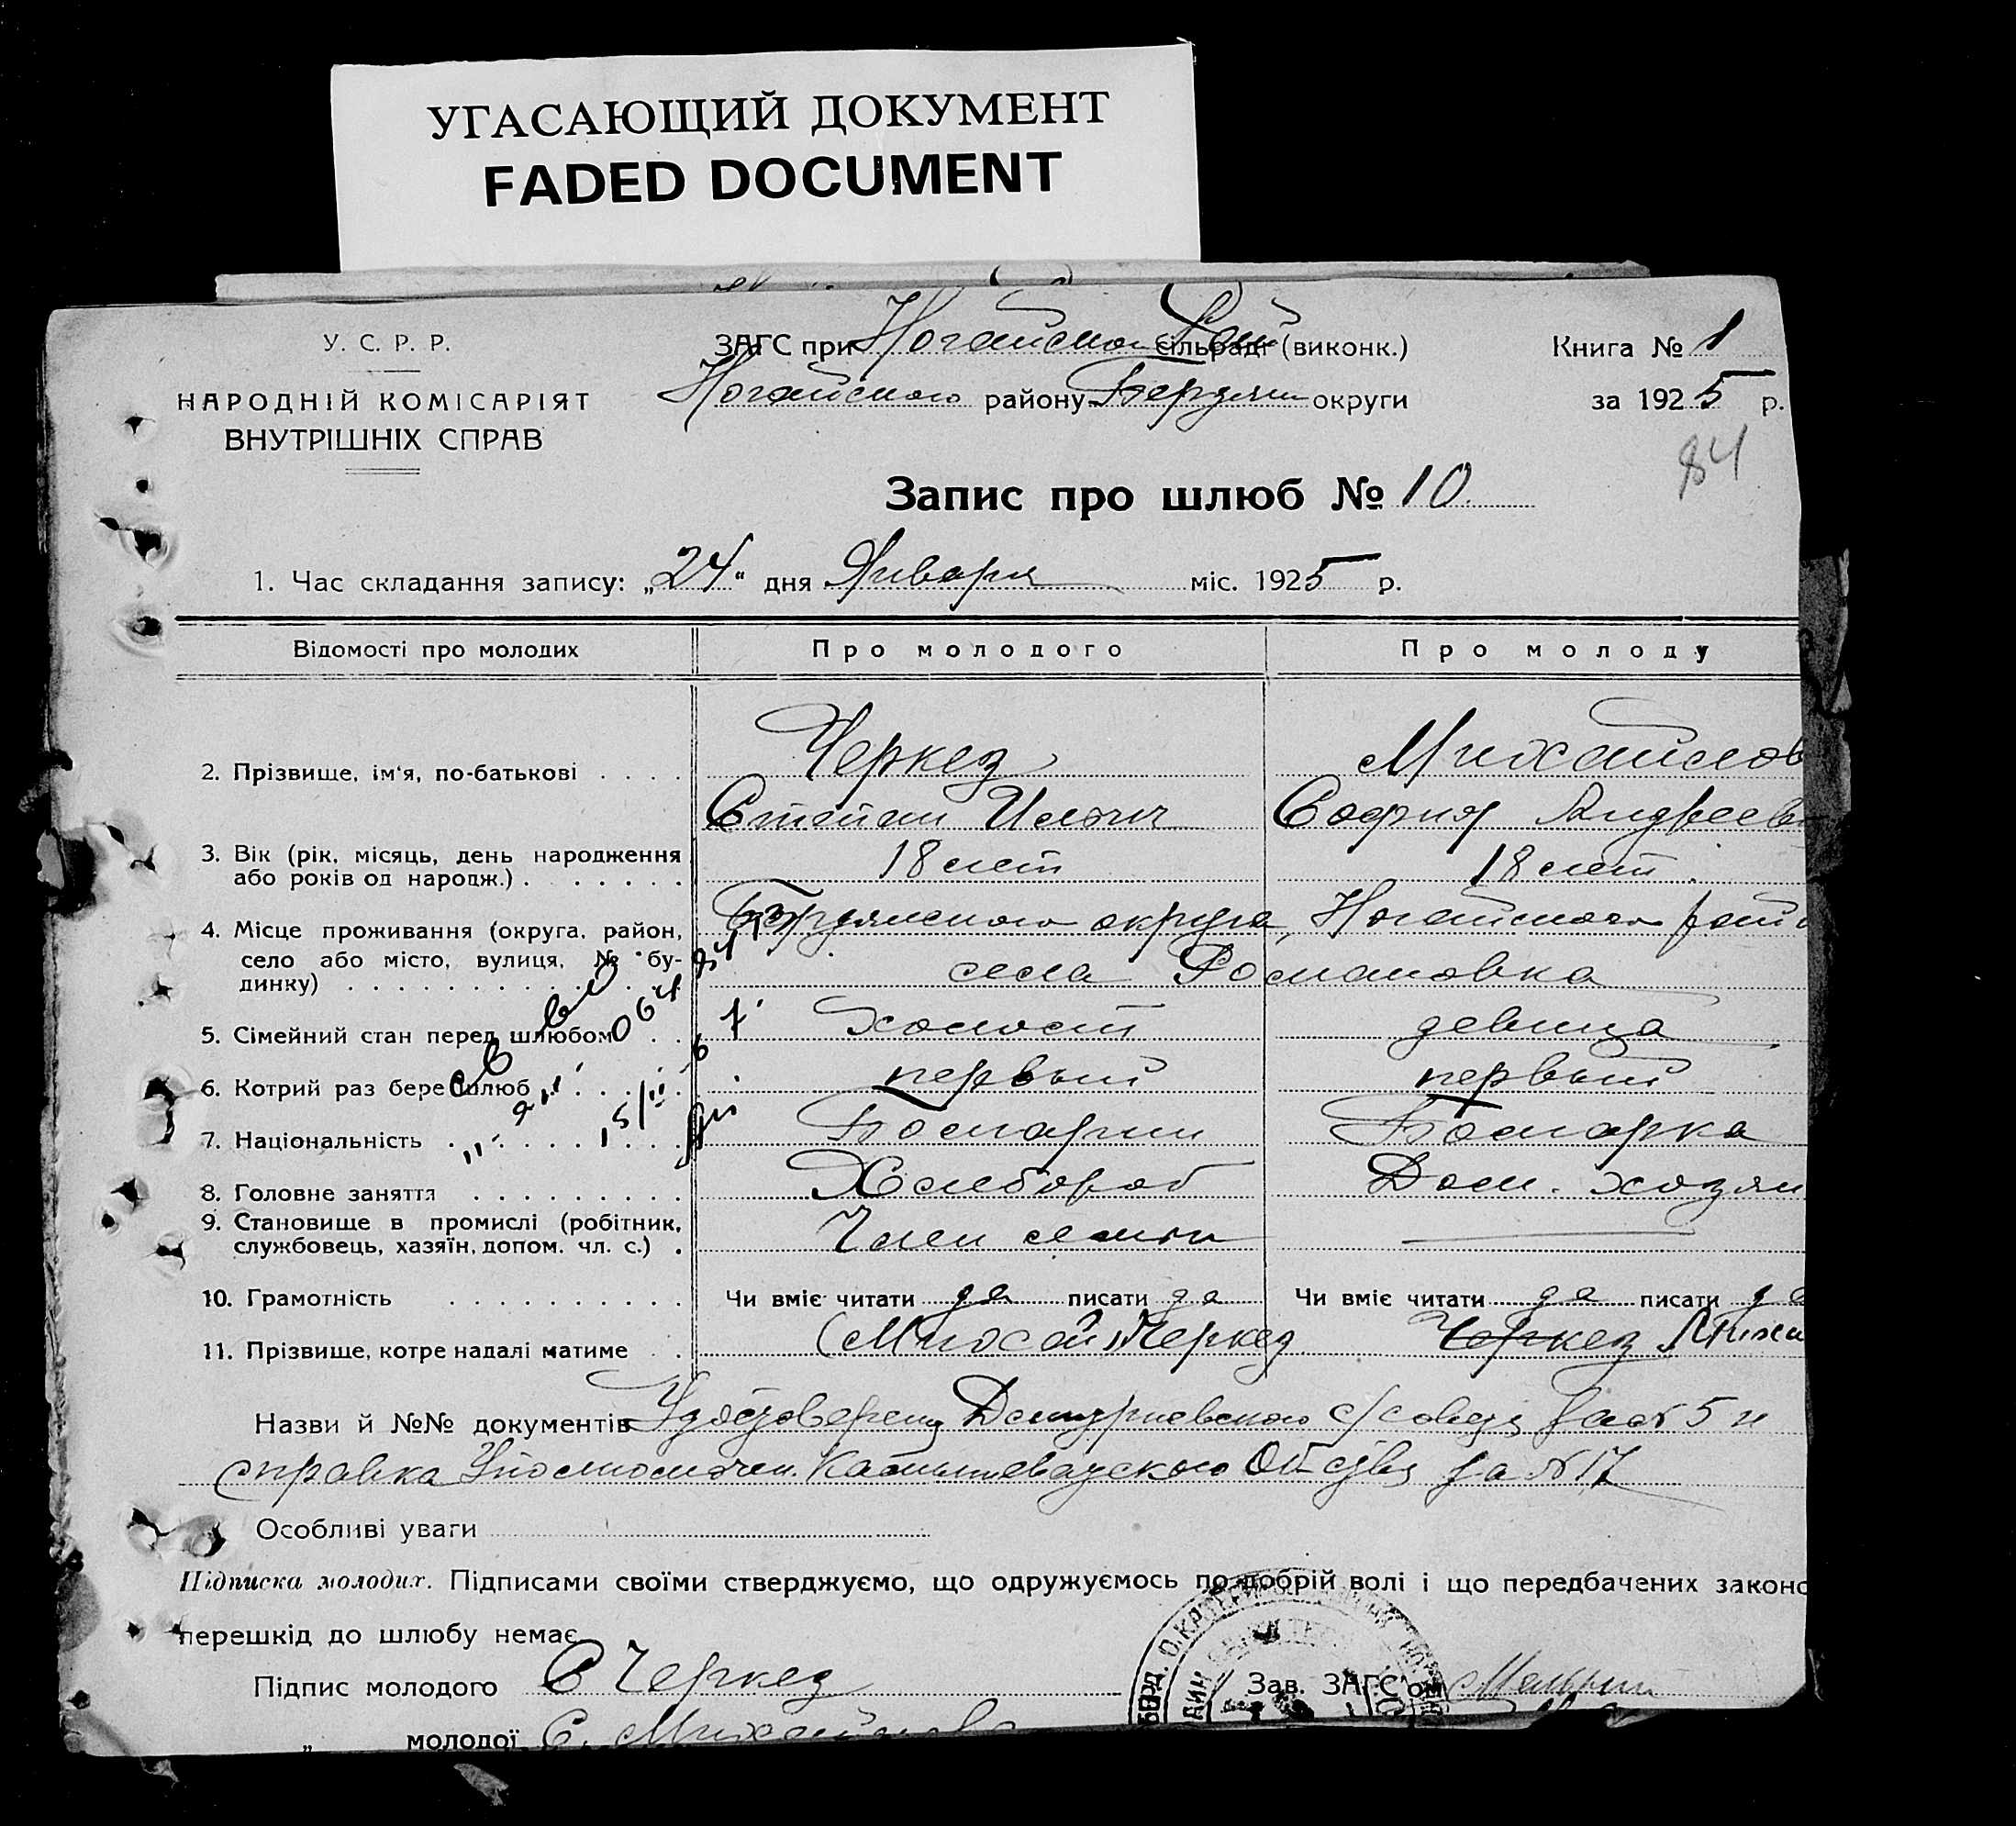 УГАСАЮЩИЙ ДОКУМЕНТ
FADED DOCUMENT
У. С. Р. Р.
НАРОДНІЙ КОМІСАРІЯТ
ВНУТРІШНІХ СПРАВ
ЗАГС при Ногайском Рай сільраді (виконк.)
Ногайского району Бердянск округи
Книга № 1
за 1925 р.
84
Запис про шлюб № 10
1. Час складання запису: „24" дня Января міс. 1925 р.
Відомості про молодих Про молодого Про молоду
2. Прізвище, ім'я, по-батькові . . . . Черкез Михайлов
Степан Ильич София Андреевн
3. Вік (рік, місяць, день народження 18 лет 18 лет
або років од народж.) . . . . . .
4. Місце проживання (округа, район, Бердянского округа, Ногайского рай
село або місто, вулиця, № бу- села Романовка
динку) . . . . . . . . . .
5. Сімейний стан перед шлюбом . . холост девица
6. Котрий раз бере шлюб . . . . . первый первый
7. Національність . . . . . . . Болгарин Болгарка
8. Головне заняття . . . . . . . . . Хлебороб Дом. хозяй
9. Становище в промислі (робітник, Член семьи —
службовець, хазяїн, допом. чл. с.) .
10. Грамотність . . . . . . . . . . Чи вміє читати да писати да Чи вміє читати да писати да
11. Прізвище, котре надалі матиме . . (Михай) Черкез Черкез Миха
Назви й №№ документів Удостоверен с/совета за № 5 и
справка Уполномочен. за № 17
Особливі уваги
Підписка молодих. Підписами своїми стверджуємо, що одружуємось по добрій волі і що передбачених законо
перешкід до шлюбу немає
Підпис молодого С Черкез Зав. ЗАГС'ом
„ молодої С. Михайлова